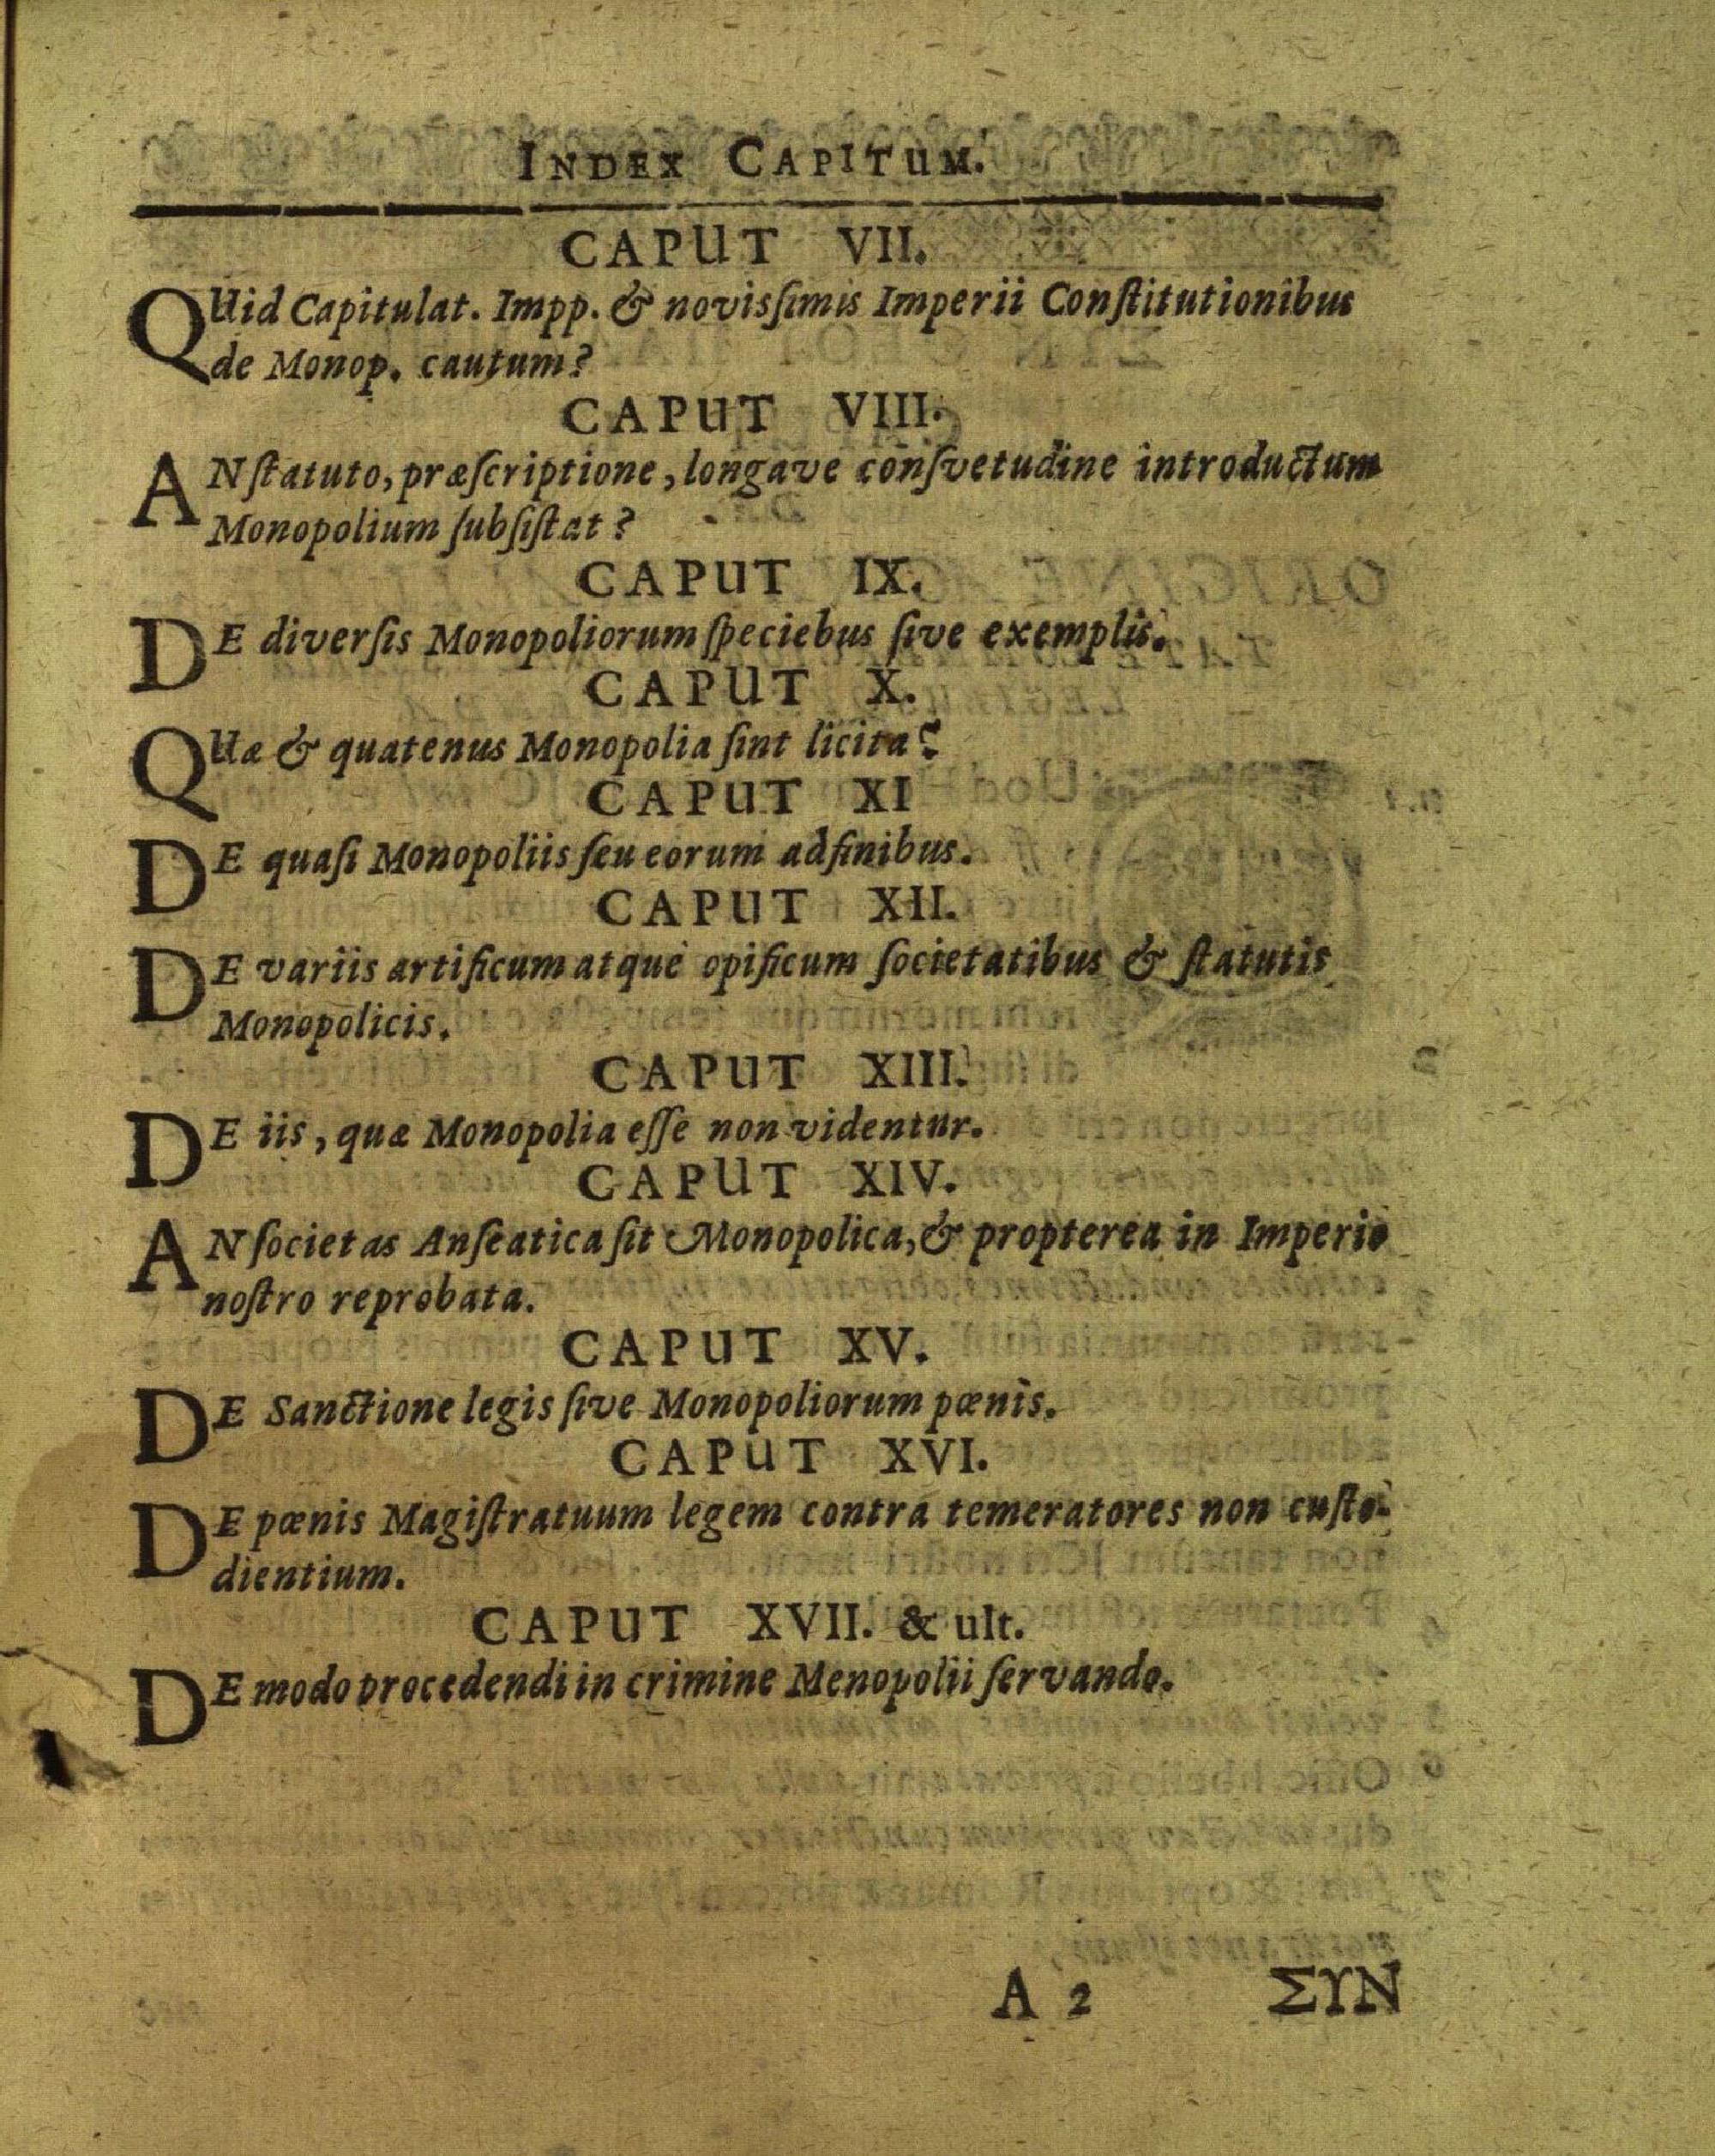 INDEX CAPITUM.
CAPUT VII.
QUid Capitulat. Impp. & novisſimis Imperii Conſtitutionibus
de Monop. cautum?
CAPUT VIII.
AN ſtatuto, præſcriptione, longave conſvetudine introductum
Monopolium ſubſiſtat?
CAPUT IX.
DE diverſis Monopoliorum ſpeciebus ſive exemplis.
CAPUT X.
QUæ & quatenus Monopolia ſint licita?
CAPUT XI
DE quaſi Monopoliis ſeu eorum adfinibus.
CAPUT XII.
DE variis artificum atque opificum ſocietatibus & ſtatutis
Monopolicis.
CAPUT XIII.
DE iis, quæ Monopolia eſſe non videntur.
CAPUT XIV.
AN ſocietas Anſeatica ſit Monopolica, & propterea in Imperio
noſtro reprobata.
CAPUT XV.
DE Sanctione legis ſive Monopoliorum pœnis.
CAPUT XVI.
DE pœnis Magiſtratuum legem contra temeratores non cuſto-
dientium.
CAPUT XVII. & ult.
DE modo procedendi in crimine Menopolii ſervando.
A 2 ΣΥΝ